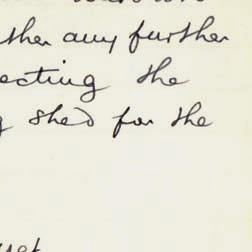 ther any further
ecting the
g shed for the
yet